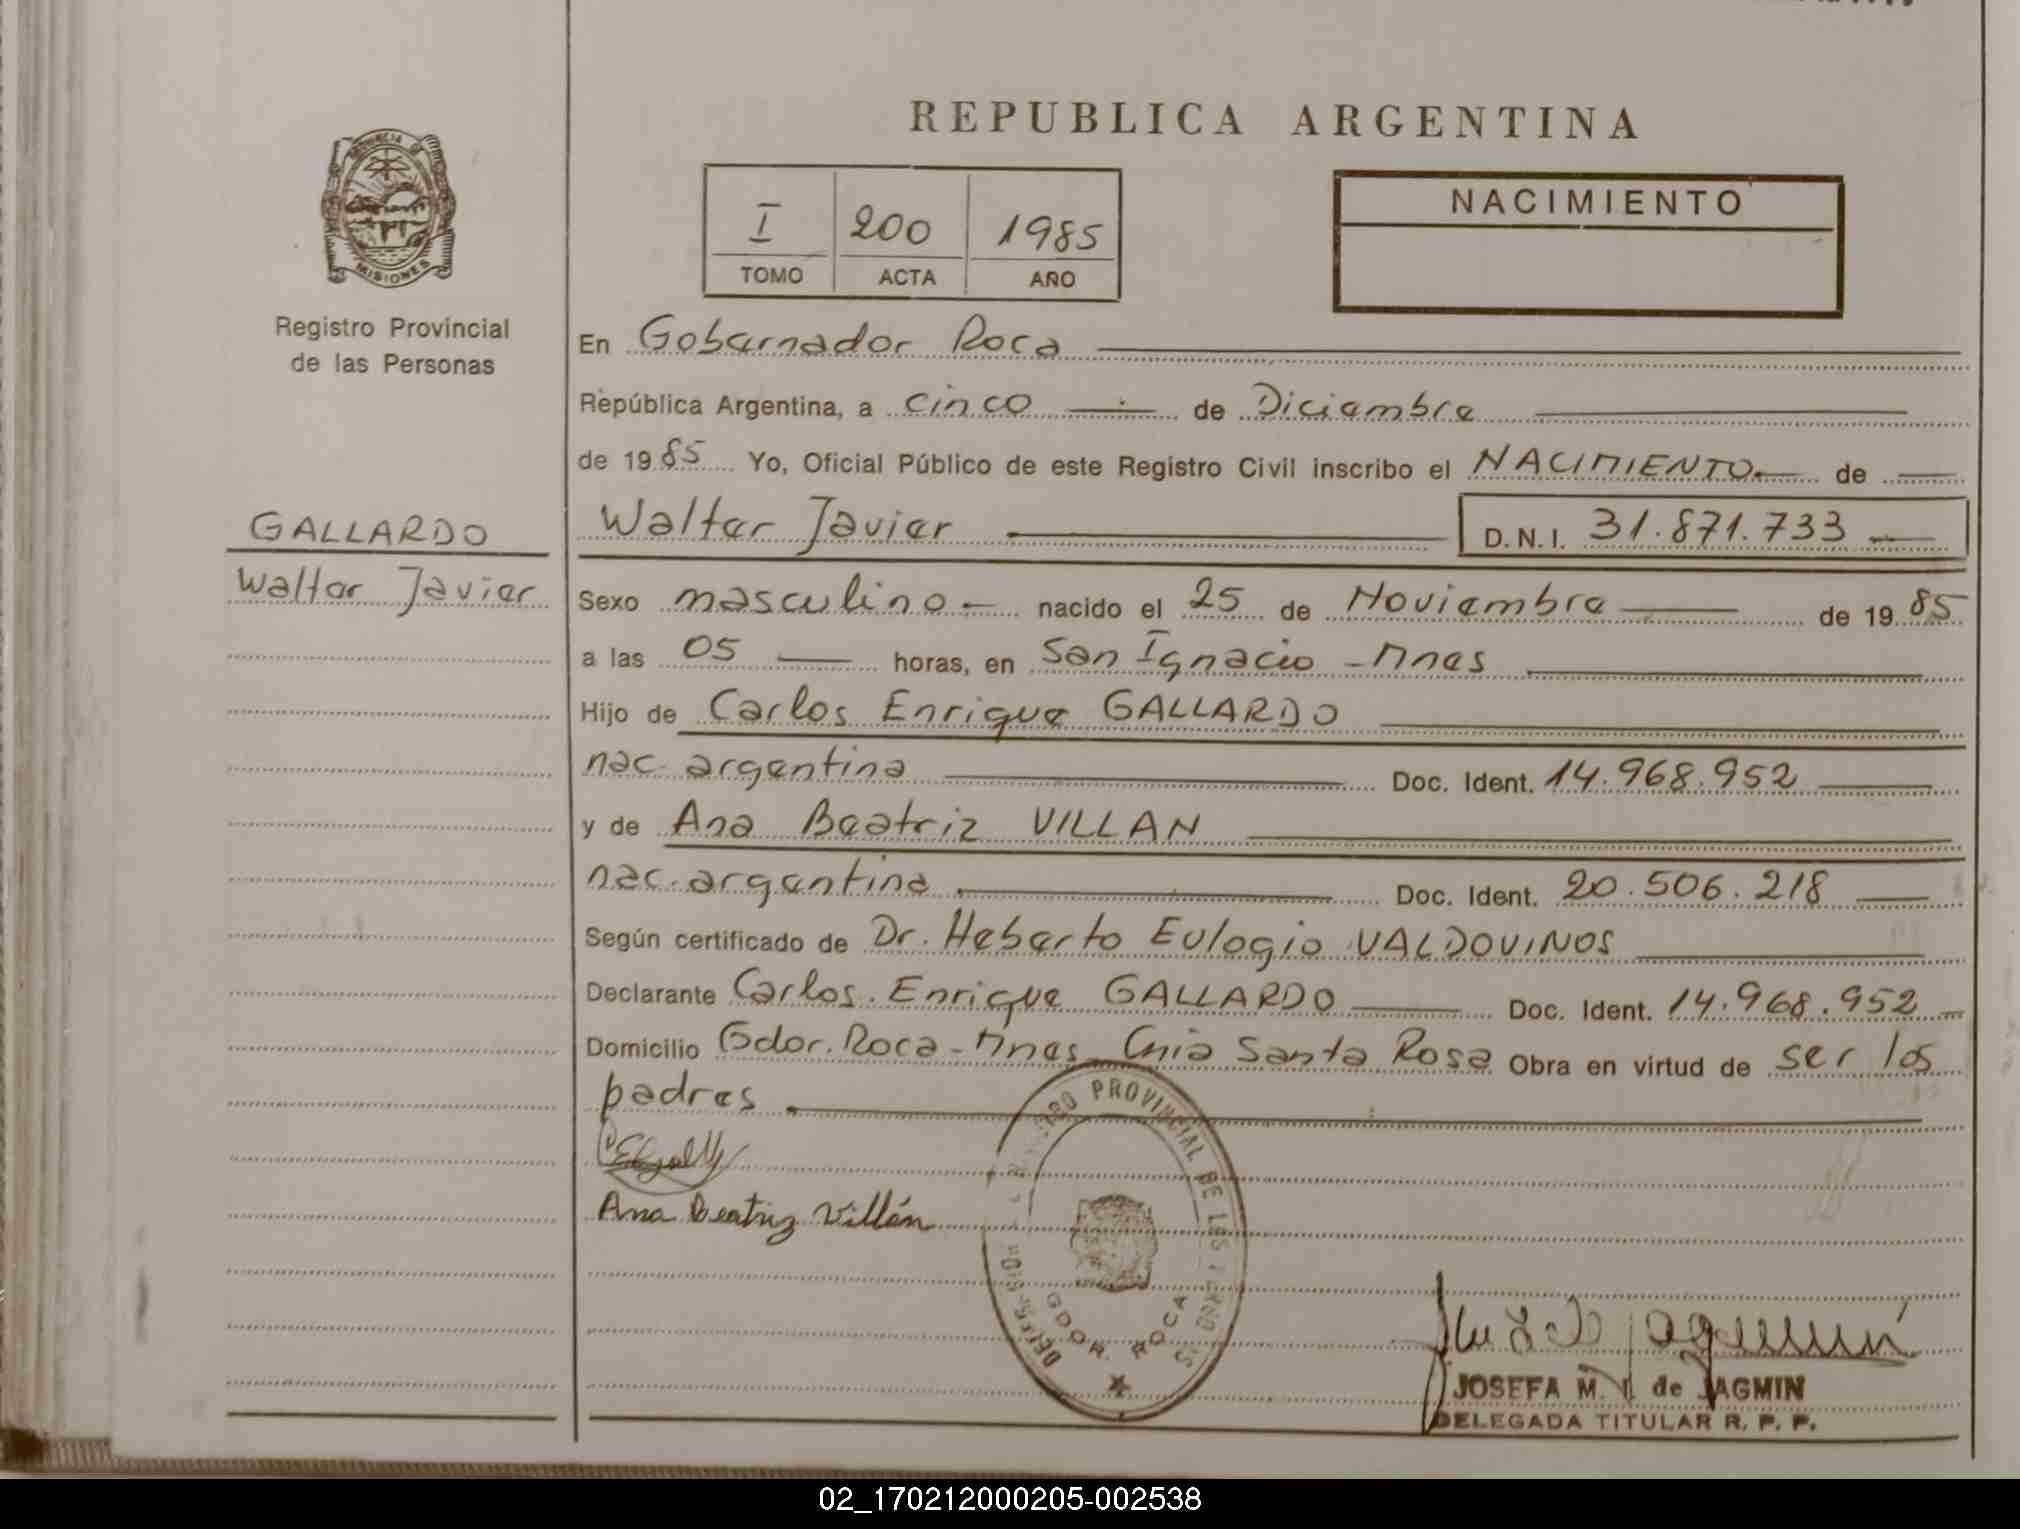 REPUBLICA ARGENTINA
PROVINCIA DE
MISIONES
Registro Provincial
de las Personas
I 200 1985
TOMO ACTA AÑO
NACIMIENTO
En Gobernador Roca
República Argentina, a cinco de Diciembre
de 1985 Yo, Oficial Público de este Registro Civil inscribo el NACIMIENTO de
GALLARDO
Walter Javier
Walter Javier D.N.I. 31.871.733
Sexo masculino nacido el 25 de Noviembre de 1985
a las 05 horas, en San Ignacio - Mnes
Hijo de Carlos Enrique GALLARDO
nac. argentina Doc. Ident. 14.968.952
y de Ana Beatriz VILLAN
nac. argentina Doc. Ident. 20.506.218
Según certificado de Dr. Heberto Eulogio VALDOVINOS
Declarante Carlos Enrique GALLARDO Doc. Ident. 14.968.952
Domicilio Gdor. Roca - Mnes Cnia Santa Rosa Obra en virtud de ser los
padres
Ana Beatriz Villán
PROVINCIAL DE LAS
GDOR. ROCA
JOSEFA M. de JAGMIN
DELEGADA TITULAR R. P. P.
02_170212000205-002538